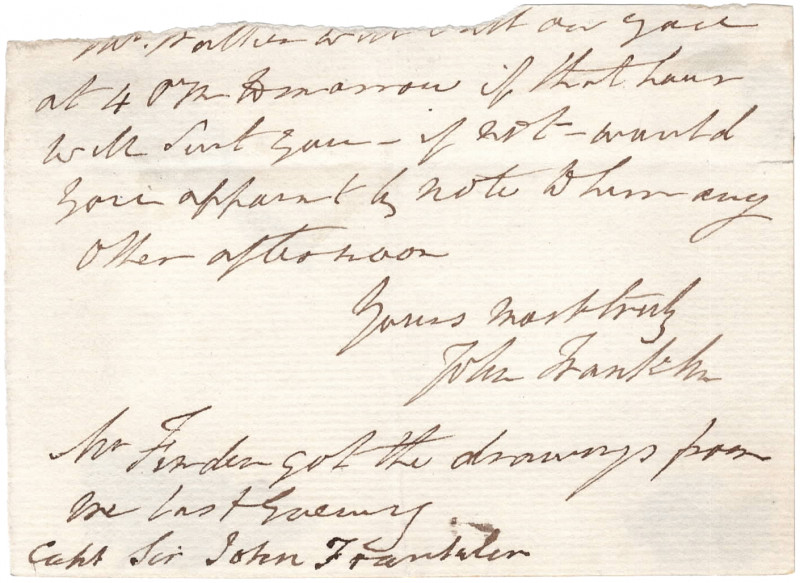 Mr. Walker will call on you
at 4 PM tomorrow if that hour
will suit you – if not – would
you appoint by note to him any
other afternoon
Yours most truly
John Franklin
Mr Finden got the drawings from
me last Evening
Capt Sir John Franklin